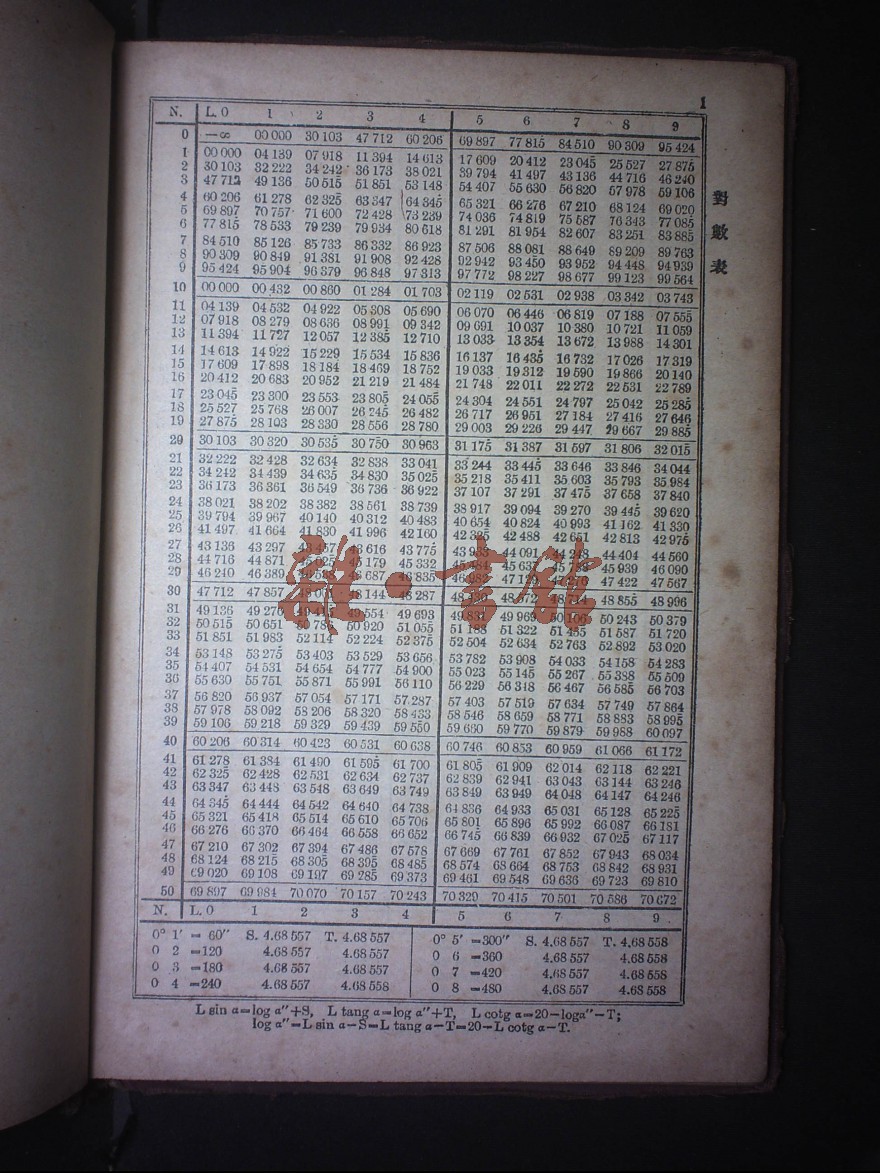 1
對數表
N. L. 0 1 2 3 4 5 6 7 8 9
0 —∞ 00 000 30 103 47 712 60 206 69 897 77 815 84 510 90 309 95 424
1 00 000 04 139 07 918 11 394 14 613 17 609 20 412 23 045 25 527 27 875
2 30 103 32 222 34 242 36 173 38 021 39 794 41 497 43 136 44 716 46 240
3 47 712 49 136 50 515 51 851 53 148 54 407 55 630 56 820 57 978 59 106
4 60 206 61 278 62 325 63 347 64 345 65 321 66 276 67 210 68 124 69 020
5 69 897 70 757 71 600 72 428 73 239 74 036 74 819 75 587 76 343 77 085
6 77 815 78 533 79 239 79 934 80 618 81 291 81 954 82 607 83 251 83 885
7 84 510 85 126 85 733 86 332 86 923 87 506 88 081 88 649 89 209 89 763
8 90 309 90 849 91 381 91 908 92 428 92 942 93 450 93 952 94 448 94 939
9 95 424 95 904 96 379 96 848 97 313 97 772 98 227 98 677 99 123 99 564
10 00 000 00 432 00 860 01 284 01 703 02 119 02 531 02 938 03 342 03 743
11 04 139 04 532 04 922 05 308 05 690 06 070 06 446 06 819 07 188 07 555
12 07 918 08 279 08 636 08 991 09 342 09 691 10 037 10 380 10 721 11 059
13 11 394 11 727 12 057 12 385 12 710 13 033 13 354 13 672 13 988 14 301
14 14 613 14 922 15 229 15 534 15 836 16 137 16 435 16 732 17 026 17 319
15 17 609 17 898 18 184 18 469 18 752 19 033 19 312 19 590 19 866 20 140
16 20 412 20 683 20 952 21 219 21 484 21 748 22 011 22 272 22 531 22 789
17 23 045 23 300 23 553 23 805 24 055 24 304 24 551 24 797 25 042 25 285
18 25 527 25 768 26 007 26 245 26 482 26 717 26 951 27 184 27 416 27 646
19 27 875 28 103 28 330 28 556 28 780 29 003 29 226 29 447 29 667 29 885
29 30 103 30 320 30 535 30 750 30 963 31 175 31 387 31 597 31 806 32 015
21 32 222 32 428 32 634 32 838 33 041 33 244 33 445 33 646 33 846 34 044
22 34 242 34 439 34 635 34 830 35 025 35 218 35 411 35 603 35 793 35 984
23 36 173 36 361 36 549 36 736 36 922 37 107 37 291 37 475 37 658 37 840
24 38 021 38 202 38 382 38 561 38 739 38 917 39 094 39 270 39 445 39 620
25 39 794 39 967 40 140 40 312 40 483 40 654 40 824 40 993 41 162 41 330
26 41 497 41 664 41 830 41 996 42 160 42 325 42 488 42 651 42 813 42 975
27 43 136 43 297 43 457 43 616 43 775 43 933 44 091 44 248 44 404 44 560
28 44 716 44 871 45 025 45 179 45 332 45 484 45 637 45 788 45 939 46 090
29 46 240 46 389 46 538 46 687 46 835 46 982 47 129 47 276 47 422 47 567
30 47 712 47 857 48 001 48 144 48 287 48 430 48 572 48 714 48 855 48 996
31 49 136 49 276 49 415 49 554 49 693 49 831 49 969 50 106 50 243 50 379
32 50 515 50 651 50 786 50 920 51 055 51 188 51 322 51 455 51 587 51 720
33 51 851 51 983 52 114 52 224 52 375 52 504 52 634 52 763 52 892 53 020
34 53 148 53 275 53 403 53 529 53 656 53 782 53 908 54 033 54 158 54 283
35 54 407 54 531 54 654 54 777 54 900 55 023 55 145 55 267 55 388 55 509
36 55 630 55 751 55 871 55 991 56 110 56 229 56 348 56 467 56 585 56 703
37 56 820 56 937 57 054 57 171 57 287 57 403 57 519 57 634 57 749 57 864
38 57 978 58 092 58 206 58 320 58 433 58 546 58 659 58 771 58 883 58 995
39 59 106 59 218 59 329 59 439 59 550 59 660 59 770 59 879 59 988 60 097
40 60 206 60 314 60 423 60 531 60 638 60 746 60 853 60 959 61 066 61 172
41 61 278 61 384 61 490 61 595 61 700 61 805 61 909 62 014 62 118 62 221
42 62 325 62 428 62 531 62 634 62 737 62 839 62 941 63 043 63 144 63 246
43 63 347 63 448 63 548 63 649 63 749 63 849 63 949 64 048 64 147 64 246
44 64 345 64 444 64 542 64 640 64 738 64 836 64 933 65 031 65 128 65 225
45 65 321 65 418 65 514 65 610 65 706 65 801 65 896 65 992 66 087 66 181
46 66 276 66 370 66 464 66 558 66 652 66 745 66 839 66 932 67 025 67 117
47 67 210 67 302 67 394 67 486 67 578 67 669 67 761 67 852 67 943 68 034
48 68 124 68 215 68 305 68 395 68 485 68 574 68 664 68 753 68 842 68 931
49 69 020 69 108 69 197 69 285 69 373 69 461 69 548 69 636 69 723 69 810
50 69 897 69 984 70 070 70 157 70 243 70 329 70 415 70 501 70 586 70 672
N. L. 0 1 2 3 4 5 6 7 8 9
0° 1′ = 60″ S. 4.68 557 T. 4.68 557 0° 5′ =300″ S. 4.68 557 T. 4.68 558
0 2 =120 4.68 557 4.68 557 0 6 =360 4.68 557 4.68 558
0 3 =180 4.68 557 4.68 557 0 7 =420 4.68 557 4.68 558
0 4 =240 4.68 557 4.68 558 0 8 =480 4.68 557 4.68 558
L sin α=log α″+S, L tang α=log α″+T, L cotg α=20−logα″−T;
log α″=L sin α−S=L tang α−T=20−L cotg α−T.